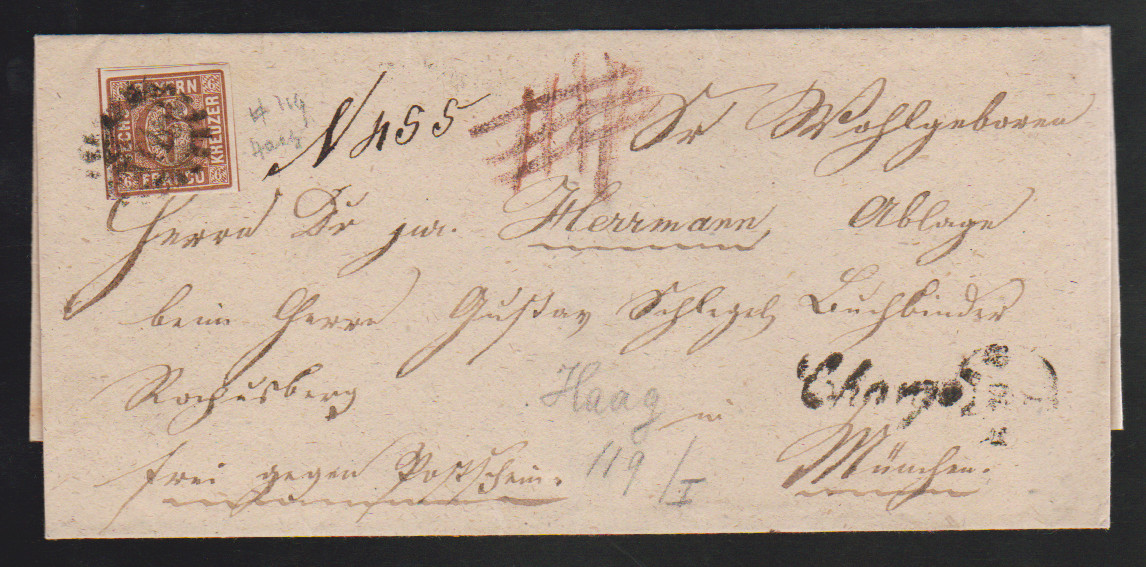 BAYERN
SECHS KREUZER
FRANCO
N 455
Sr Wohlgeboren
Herrn Dr jur. Herrmann, Ablage
beim Herrn Gustav Schlegel, Buchbinder
Rochusberg
Haag
in
Chargé
frei gegen Postschein.
119/I
München.